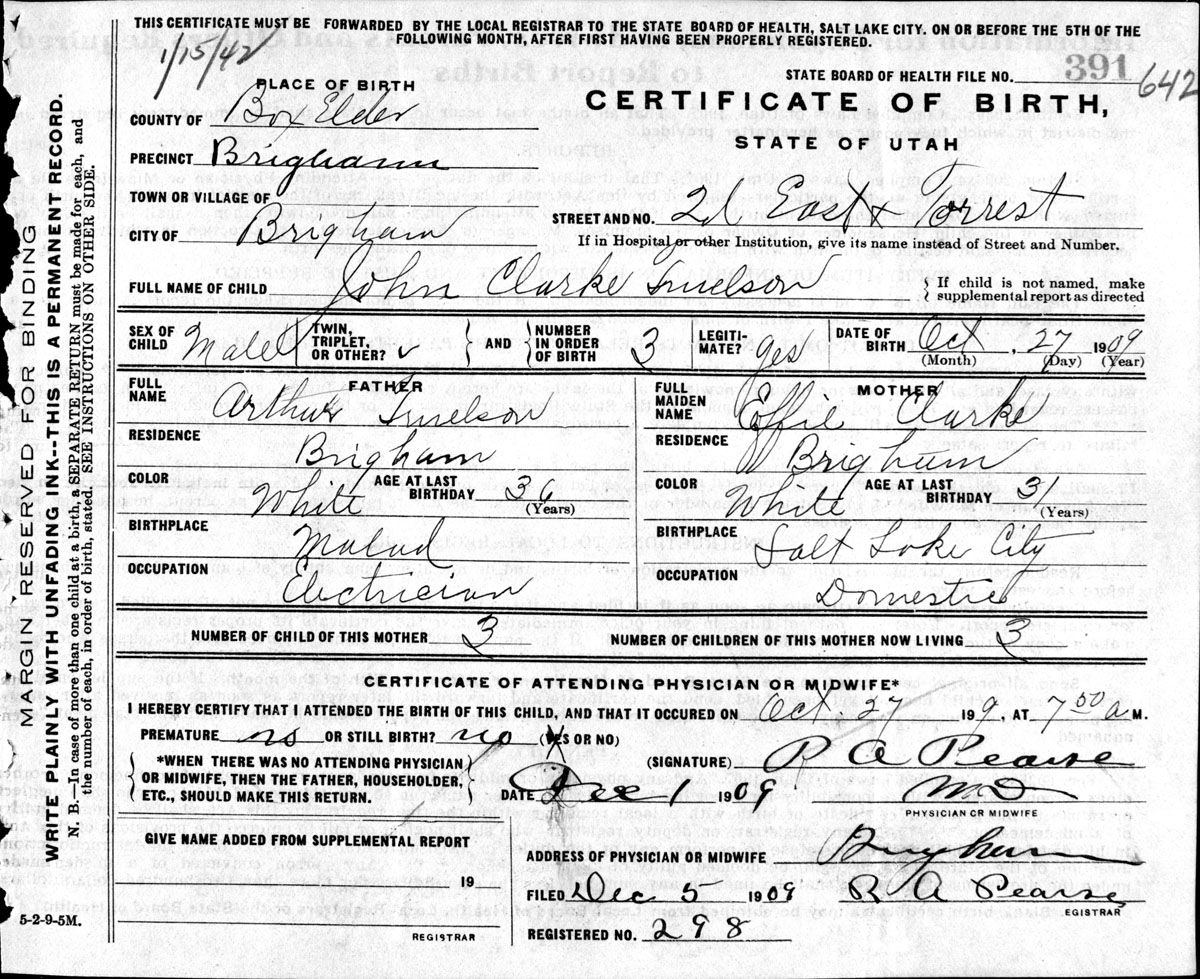 THIS CERTIFICATE MUST BE FORWARDED BY THE LOCAL REGISTRAR TO THE STATE BOARD OF HEALTH, SALT LAKE CITY. ON OR BEFORE THE 5TH OF THE
FOLLOWING MONTH, AFTER FIRST HAVING BEEN PROPERLY REGISTERED.
1/15/42
STATE BOARD OF HEALTH FILE NO. 391 642
PLACE OF BIRTH
CERTIFICATE OF BIRTH,
STATE OF UTAH
COUNTY OF Box Elder
PRECINCT Brigham
TOWN OR VILLAGE OF
STREET AND NO. 2d East & Forrest
CITY OF Brigham
If in Hospital or other Institution, give its name instead of Street and Number.
FULL NAME OF CHILD John Clarke
{ If child is not named, make
supplemental report as directed
SEX OF CHILD Male
TWIN, TRIPLET, OR OTHER?
AND
NUMBER IN ORDER OF BIRTH 3
LEGITI-MATE? yes
DATE OF BIRTH Oct, 27 1909
(Month) (Day) (Year)
FATHER
FULL NAME Arthur
RESIDENCE Brigham
COLOR White
AGE AT LAST BIRTHDAY 36
(Years)
BIRTHPLACE Malad
OCCUPATION Electrician
MOTHER
FULL MAIDEN NAME Effie Clarke
RESIDENCE Brigham
COLOR White
AGE AT LAST BIRTHDAY 31
(Years)
BIRTHPLACE Salt Lake City
OCCUPATION Domestic
NUMBER OF CHILD OF THIS MOTHER 3
NUMBER OF CHILDREN OF THIS MOTHER NOW LIVING 3
CERTIFICATE OF ATTENDING PHYSICIAN OR MIDWIFE*
I HEREBY CERTIFY THAT I ATTENDED THE BIRTH OF THIS CHILD, AND THAT IT OCCURED ON Oct. 27 199, AT 7 00 a M.
PREMATURE no OR STILL BIRTH? no (YES OR NO)
*WHEN THERE WAS NO ATTENDING PHYSICIAN
OR MIDWIFE, THEN THE FATHER, HOUSEHOLDER,
ETC., SHOULD MAKE THIS RETURN.
(SIGNATURE) R A Pearse
DATE Dec 1 1909 M D
PHYSICIAN OR MIDWIFE
GIVEN NAME ADDED FROM SUPPLEMENTAL REPORT
19
REGISTRAR
ADDRESS OF PHYSICIAN OR MIDWIFE Brigham
FILED Dec 5 1909 R A Pearse
EGISTRAR
REGISTERED NO. 298
5-2-9-5M.
MARGIN RESERVED FOR BINDING
WRITE PLAINLY WITH UNFADING INK--THIS IS A PERMANENT RECORD.
N. B.—In case of more than one child at a birth, a SEPARATE RETURN must be made for each, and
the number of each, in order of birth, stated. SEE INSTRUCTIONS ON OTHER SIDE.